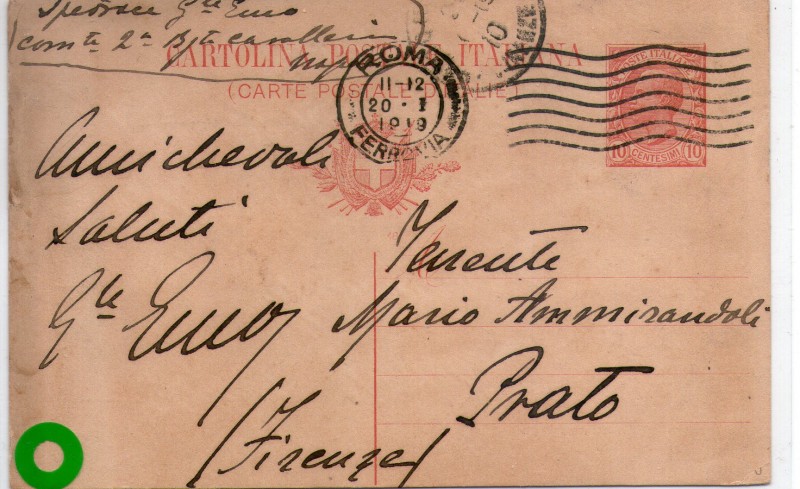 Spedisce Gte Emo
Comte 2a Bgta Cavalleria
CARTOLINA POSTALE ITALIANA
(CARTE POSTALE D'ITALIE)
ROMA
11-12
20 · I
1919
FERROVIA
POSTE ITALIANE
10 CENTESIMI 10
Amichevoli
Saluti
Gte Emo
Tenente
Mario Ammirandoli
Prato
(Firenze)